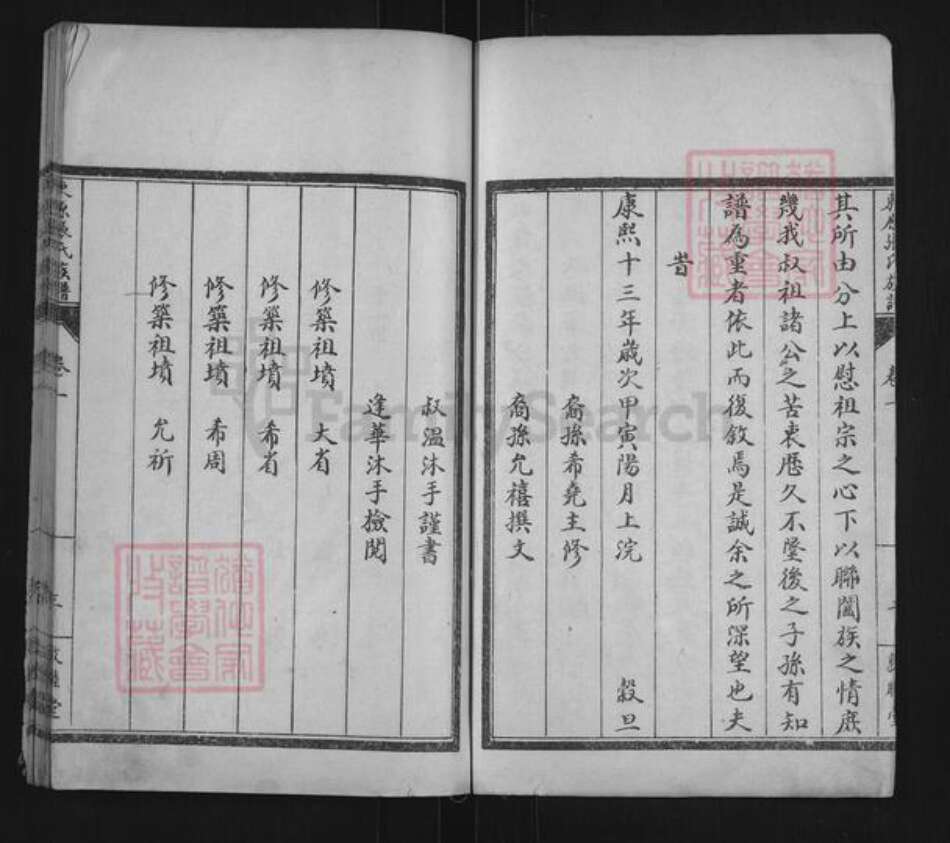 其所由分上以慰祖宗之心下以聯闔族之情庶
幾我叔祖諸公之苦衷歷久不墜後之子孫有知
譜為重者依此而復敘焉是誠余之所深望也夫
旹
康熙十三年歲次甲寅陽月上浣　穀旦
裔孫希堯主修
裔孫允禧撰文
叔溫沐手謹書
逢華沐手撿閱
修築祖墳　大省
修築祖墳　希省
修築祖墳　希周
修築祖墳　允祈
張氏族譜
卷一
FamilySearch
譜學會
收藏